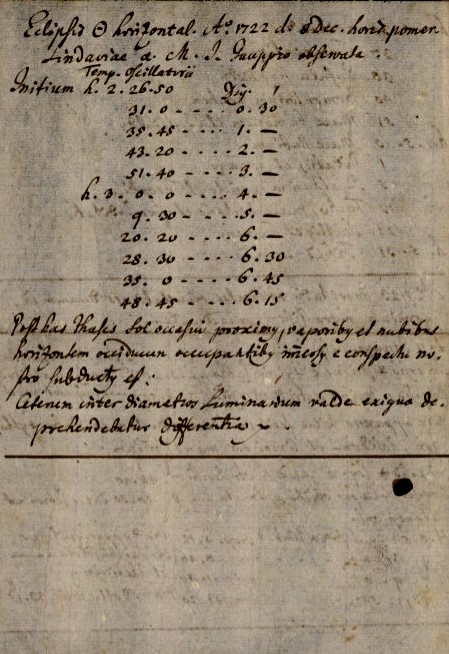 Eclipsis ☉ horizontal. Aº. 1722 d. 8 Dec. horis pomer.
Lindaviae a M. J. Gauppio observata.
Temp. Oscillatorii
Initium h. 2. 26. 50 Dig. '
31. 0 - - - - 0. 30
35. 45 - - - - 1. —
43. 20 - - - - 2. —
51. 40 - - - - 3. —
h. 3. 0. 0 - - - - 4. —
9. 30 - - - - 5. —
20. 20 - - - - 6. —
28. 30 - - - - 6. 30
35. 0 - - - - 6. 45
48. 45 - - - - 6. 15
Post has Phases Sol occasui proximus, vaporibus et nubibus
horizontem occupantibus e conspectu no-
stro subductus est.
Ceterum inter diametros Luminarium valde exigua de-
prehendebatur differentia